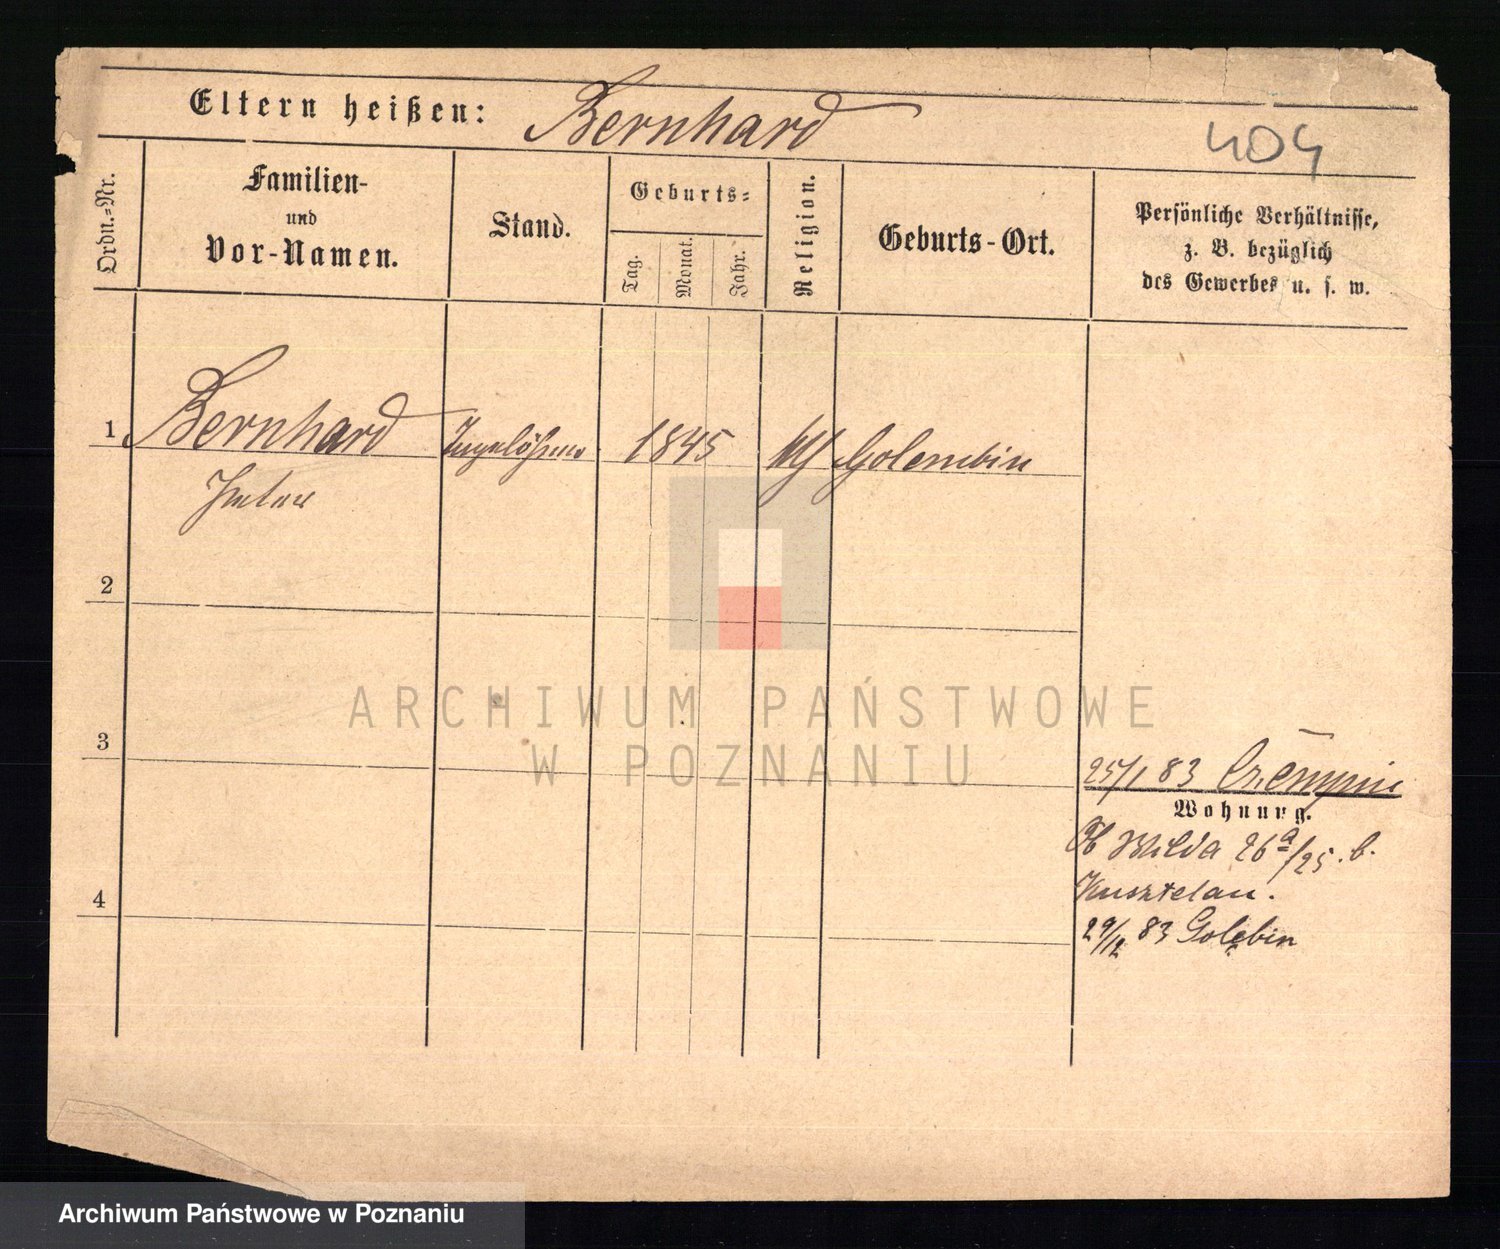 Eltern heißen: Bernhard
404
Ordn.=Nr.
Familien-
und
Vor-Namen.
Stand.
Geburts=
Tag.
Monat.
Jahr.
Religion.
Geburts-Ort.
Persönliche Verhältnisse,
z. B. bezüglich
des Gewerbes u. s. w.
1 Bernhard 1845 Golembin
2
3
25/1 83 Czempin
Wohnung.
Wilda 26 a/25. b.
Kusztelan.
4
29/12 83 Golębin
ARCHIWUM PAŃSTWOWE
W POZNANIU
Archiwum Państwowe w Poznaniu